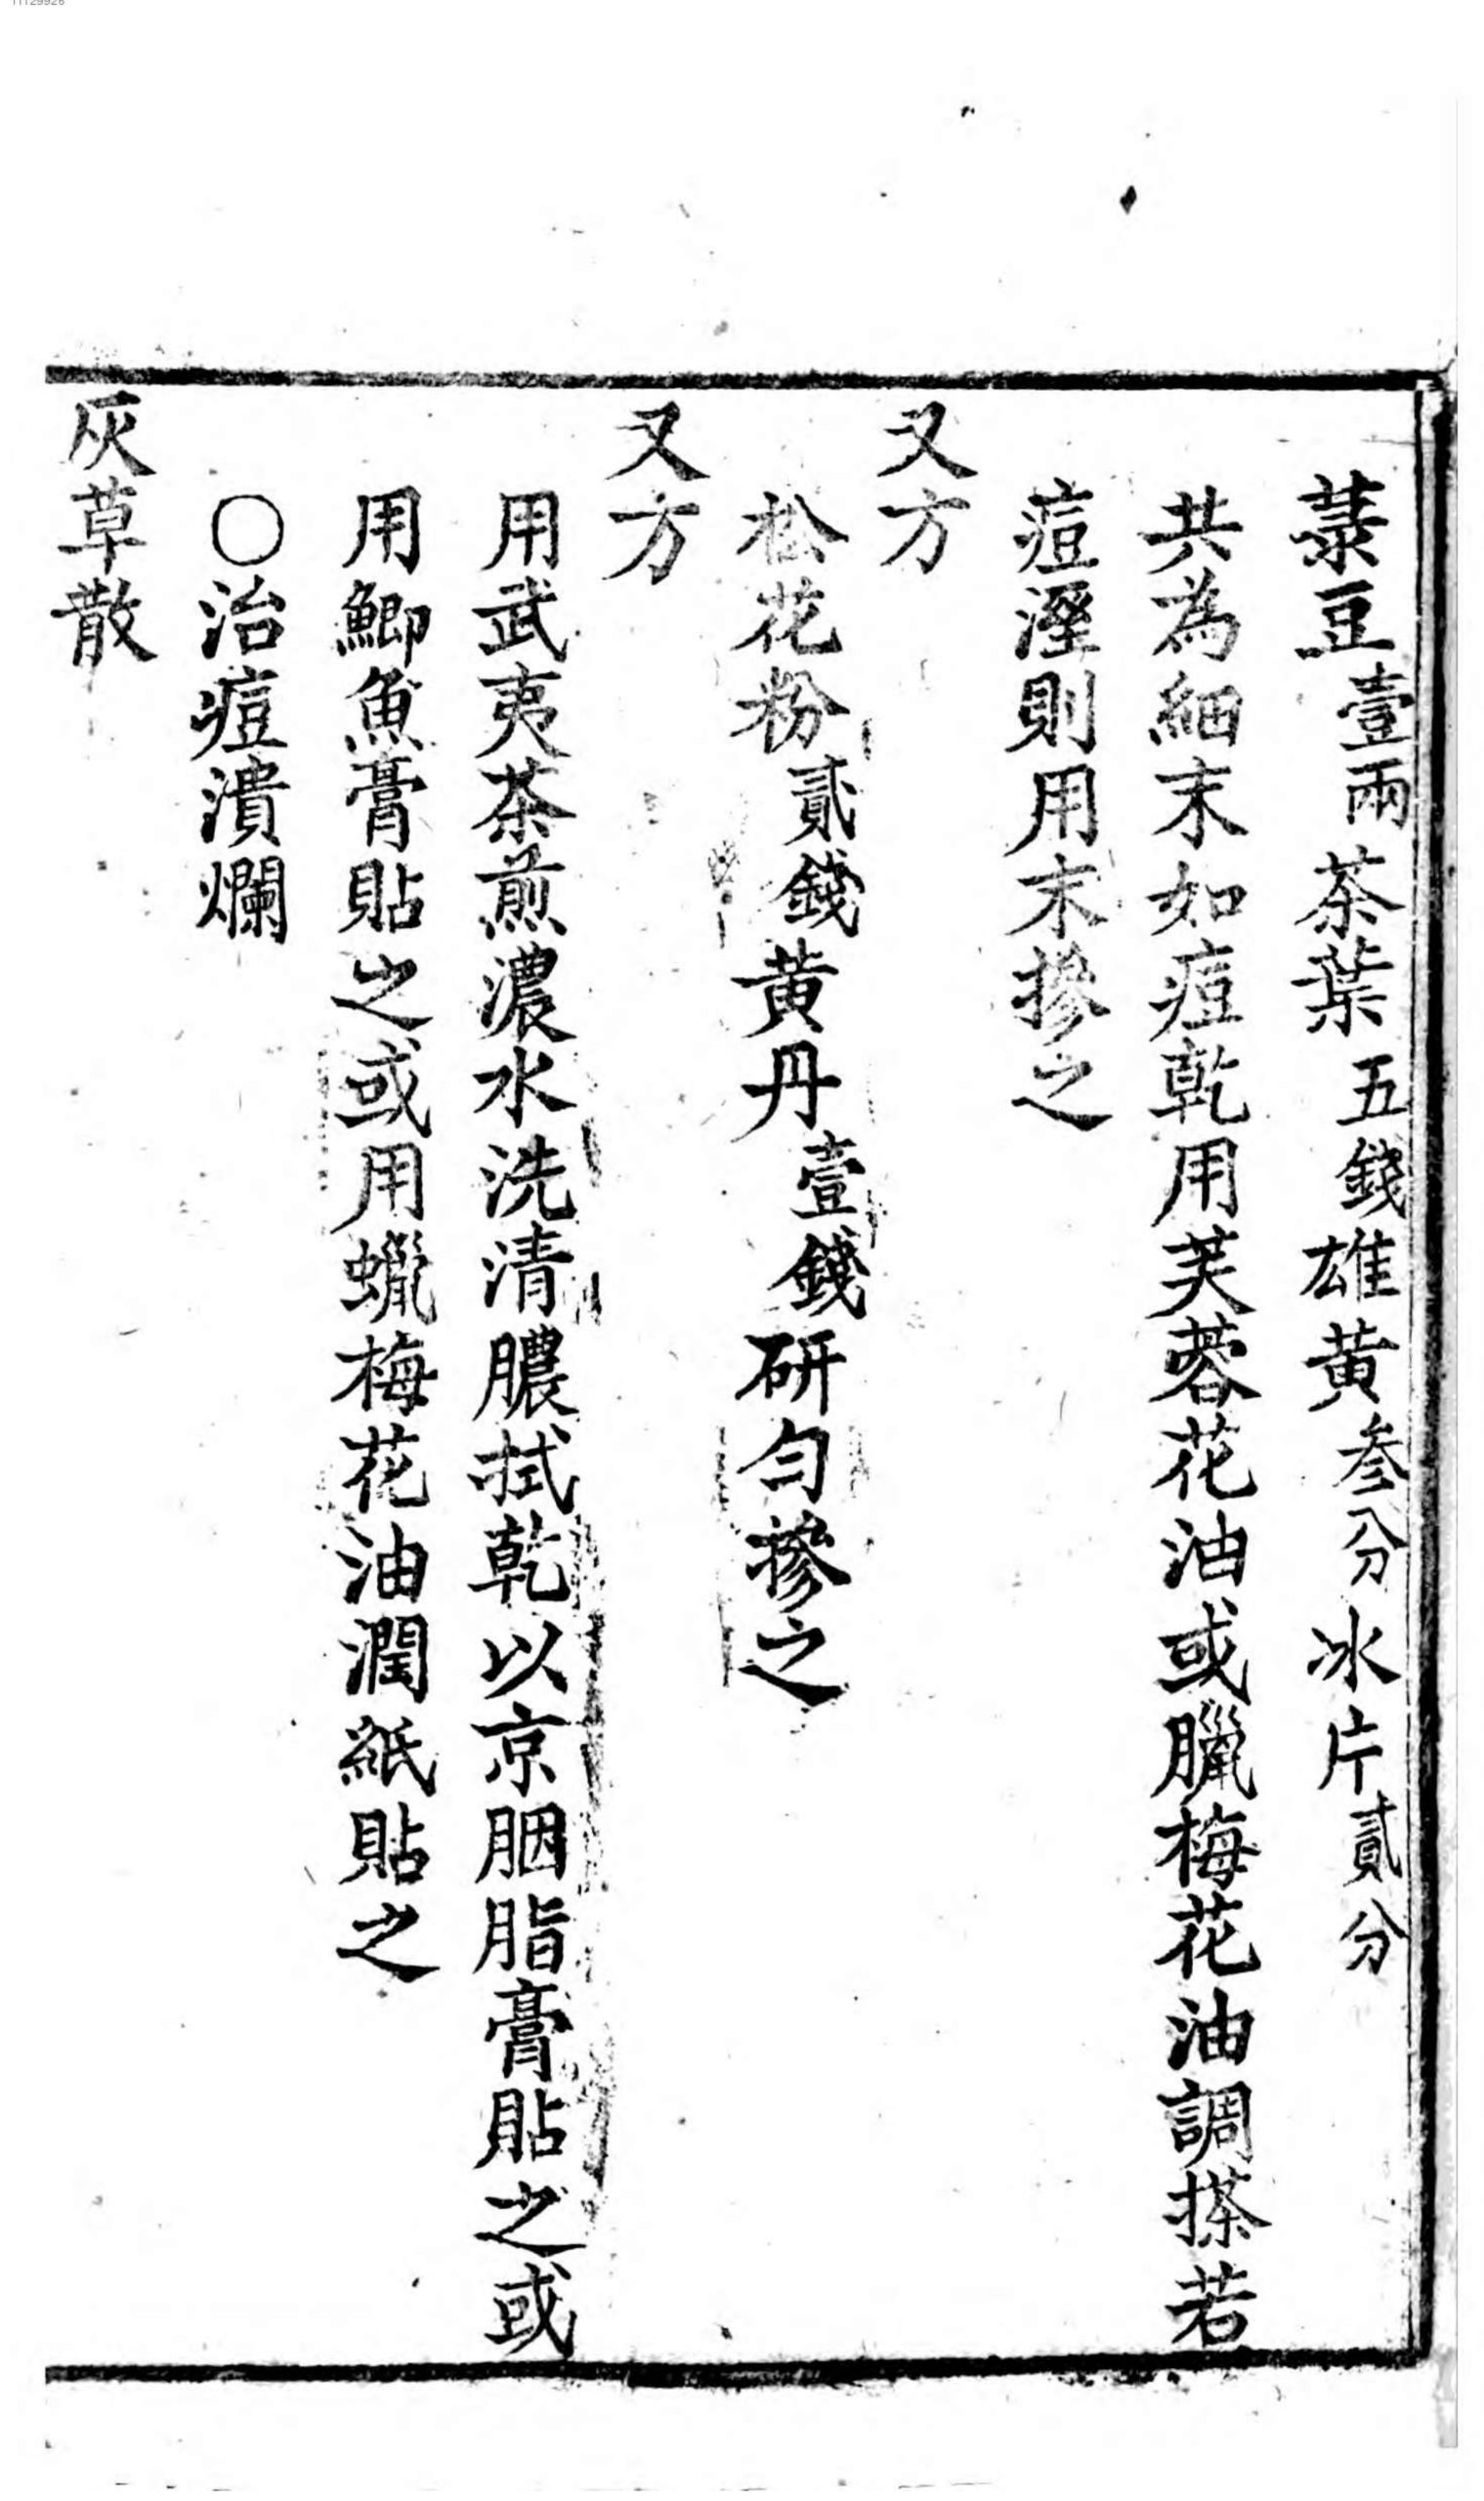 菉豆壹兩茶葉五錢雄黃叁分冰片貳分
共為細末如痘乾用芙蓉花油或臘梅花油調搽若
痘溼則用末摻之
又方
松花粉貳錢黃丹壹錢研勻摻之
又方
用武夷茶煎濃水洗清膿拭乾以京胭脂膏貼之或
用鯽魚膏貼之或用蠟梅花油潤紙貼之
○治痘潰爛
灰草散